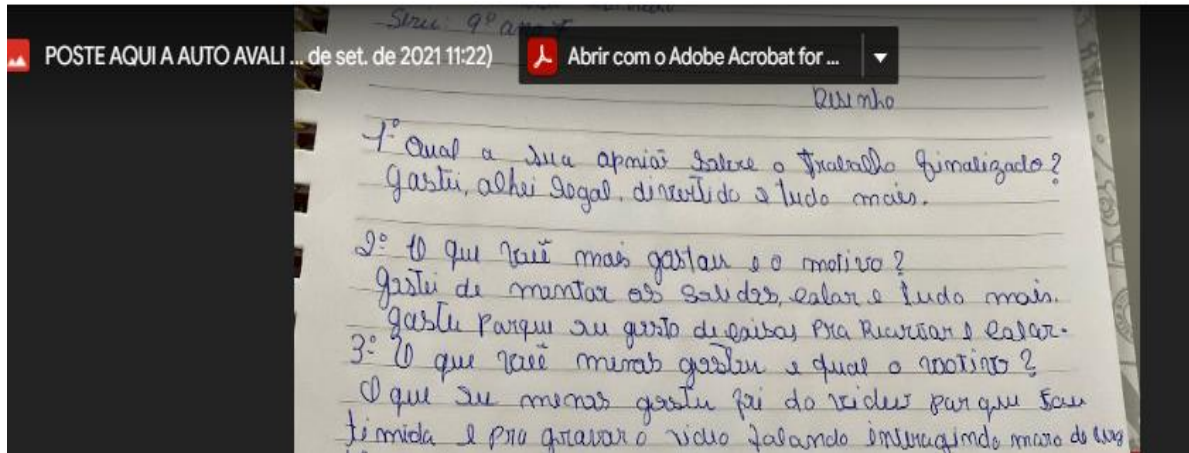 POSTE AQUI A AUTO AVALI ... de set. de 2021 11:22)
Abrir com o Adobe Acrobat for ...
Serie: 9º ano
Desenho
1º Qual a sua opnião sobre o trabalho finalizado?
Gostei, achei legal, divertido e tudo mais.
2º O que você mais gostou e o motivo?
gostei de montar os solidos, colar e tudo mais.
gostei porque eu gosto de coisas pra Recortar e colar.
3º O que você menos gostou e qual o motivo?
O que eu menos gostei foi do video por que sou
timida e pra gravar o video falando interagindo